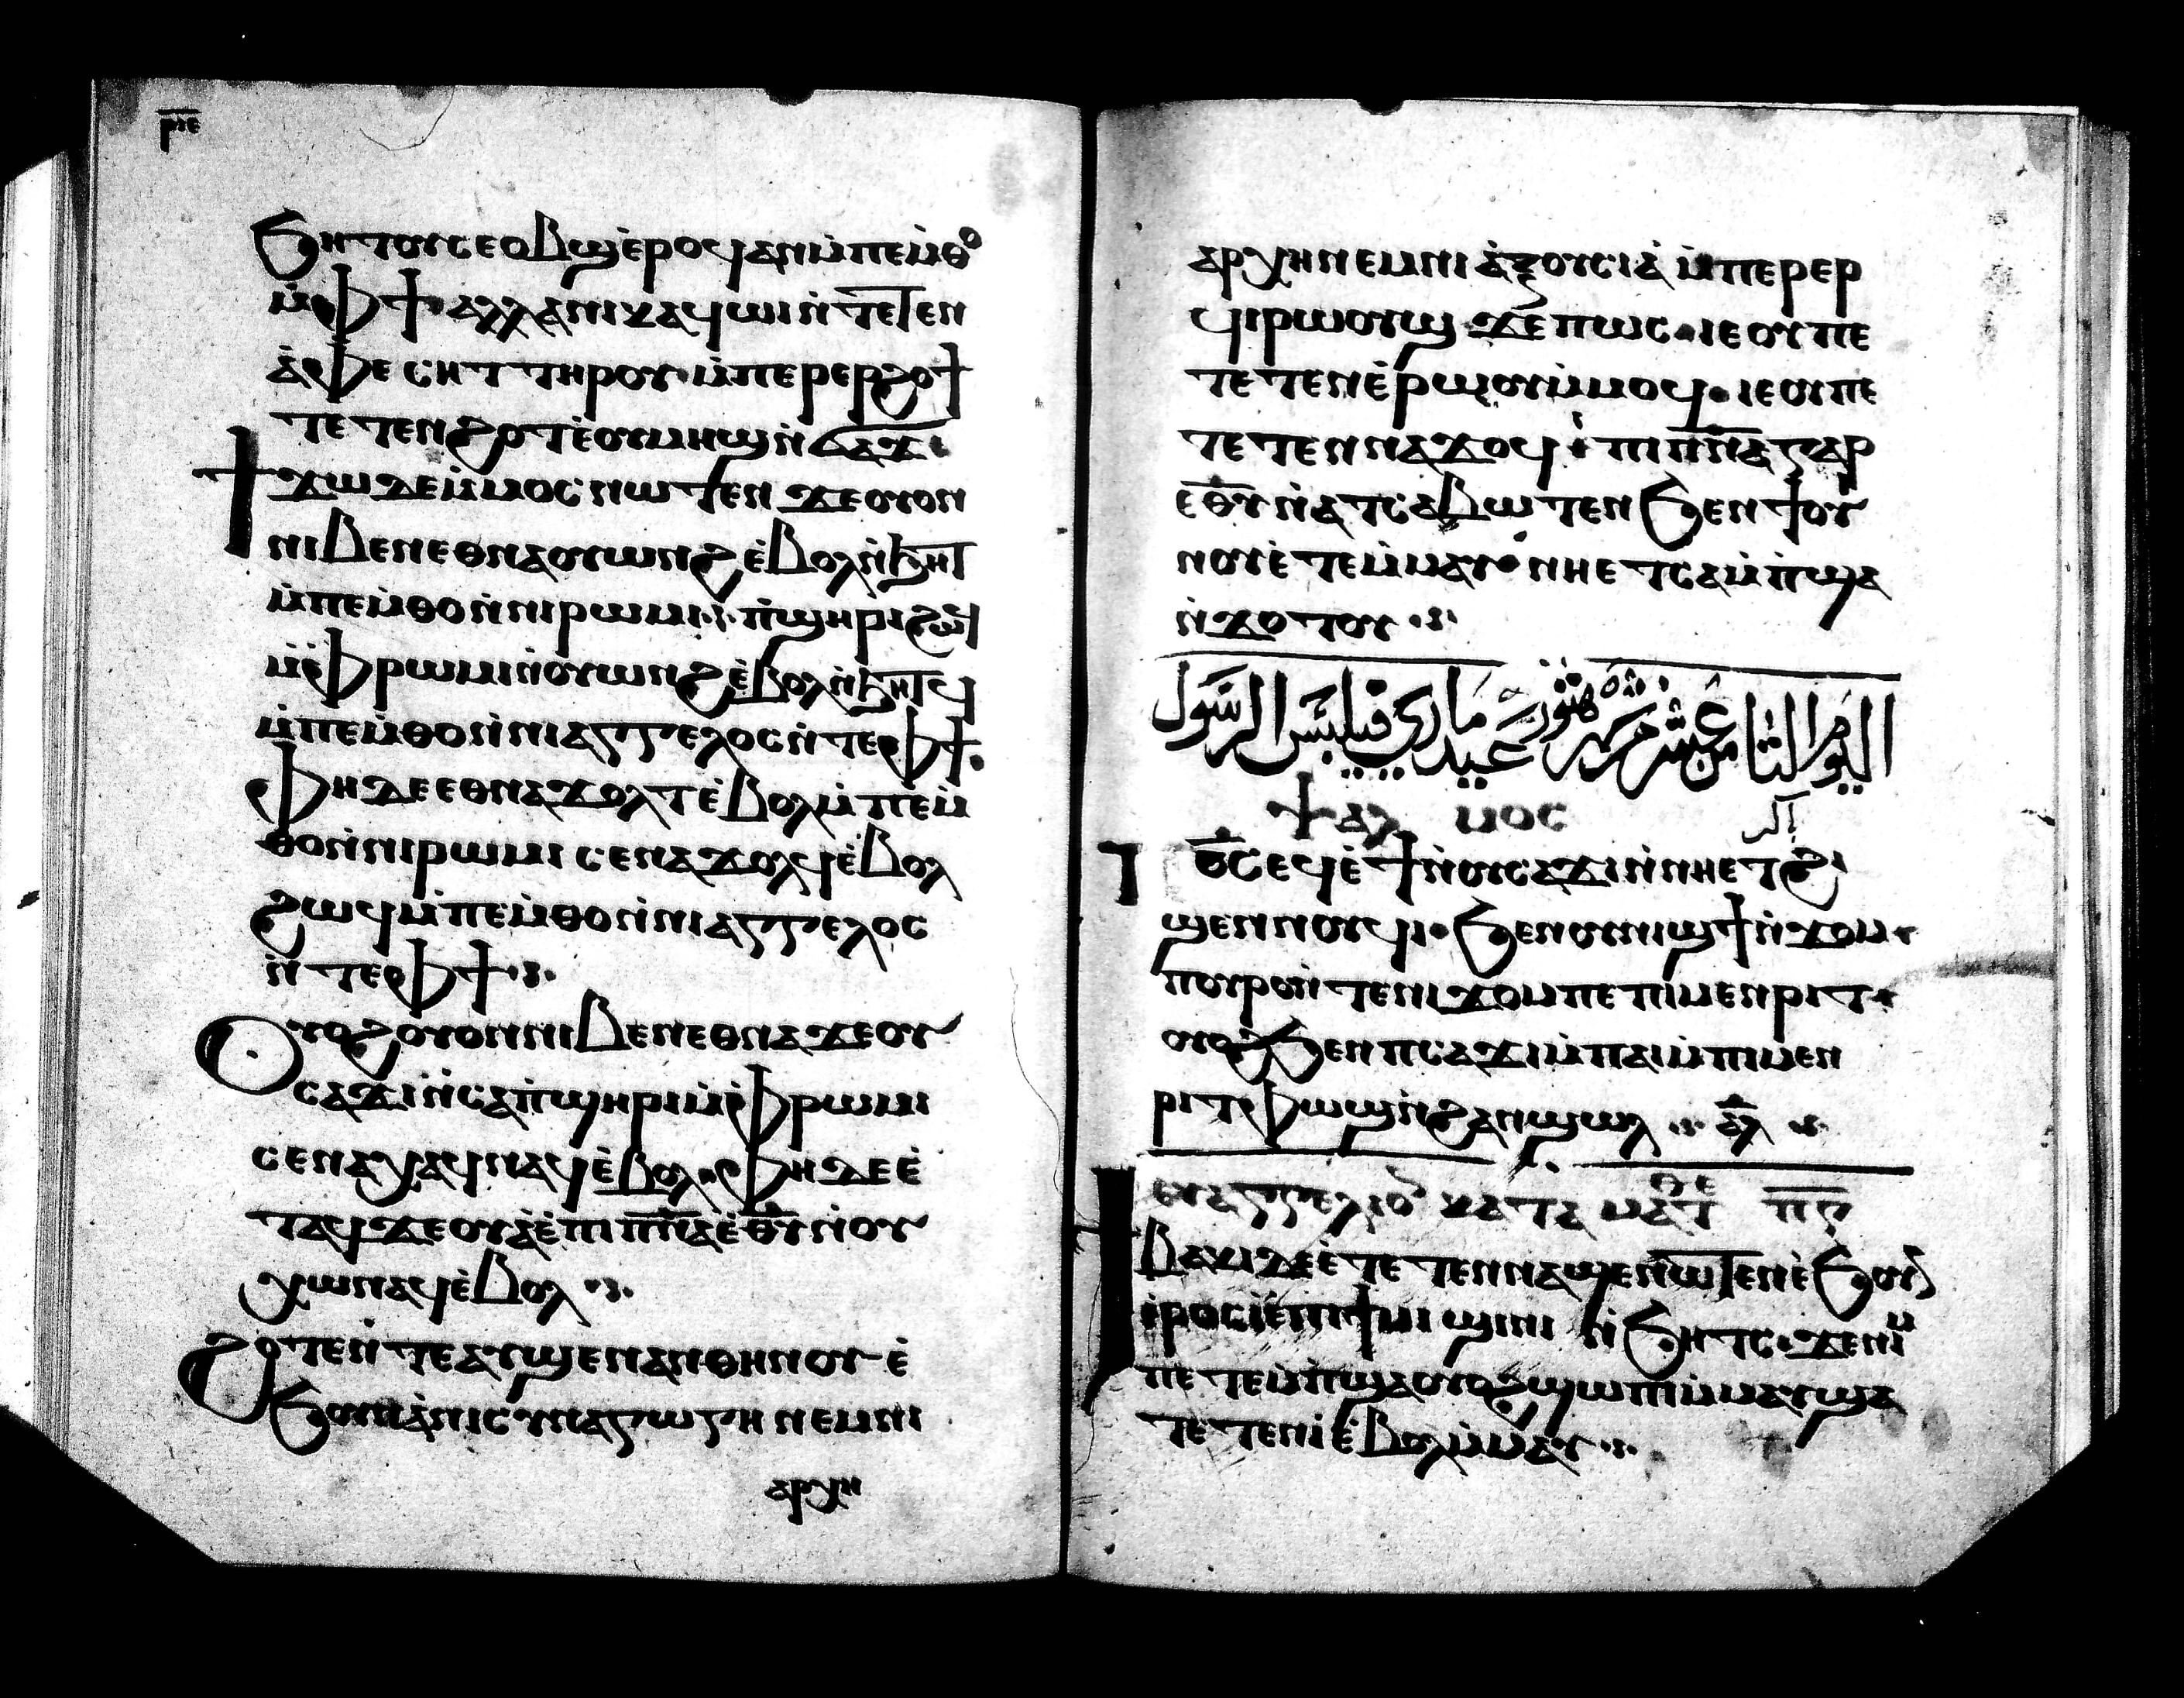 ⲣⲓⲉ
ϧⲏⲧⲟⲩⲥⲉⲟⲃϣⲉ̀ⲣⲟϥⲁⲛⲙ̀ⲡⲉⲙ̀ⲑⲟ
ⲙ̀ⲫϯ· ⲁⲗⲗⲁⲛⲓⲕⲁϥⲱⲓⲛ̀ⲧⲉⲧⲉⲛ
ⲁ̀ⲫⲉ ⲥⲏⲧ ⲧⲏⲣⲟⲩ·ⲙ̀ⲡⲉⲣⲉⲣϩⲟϯ
ⲧⲉⲧⲉⲛϩⲟⲧⲉ̀ⲟⲩⲙⲏϣⲛ̀ϭⲁϫ
ϯϫⲱ ⲇⲉⲙ̀ⲙⲟⲥ ⲛⲱⲧⲉⲛ ϫⲉⲟⲩⲟⲛ
ⲛⲓⲃⲉⲛⲉⲑⲛⲁⲟⲩⲱⲛϩⲉ̀ⲃⲟⲗⲛ̀ϧⲏⲧ
ⲙ̀ⲡⲉⲙ̀ⲑⲟⲛ̀ⲛⲓⲣⲱⲙⲓ·ⲡ̀ϣⲏⲣⲓϩⲱϥ
ⲙ̀ⲫⲣⲱⲙⲓⲛ̀ⲟⲩⲱⲛϩⲉ̀ⲃⲟⲗⲛ̀ϧⲏⲧϥ
ⲙ̀ⲡⲉⲙ̀ⲑⲟⲛ̀ⲛⲓⲁⲅⲅⲉⲗⲟⲥⲛ̀ⲧⲉⲫϯ·
ⲫⲏⲇⲉⲉⲑⲛⲁϫⲟⲗⲧⲉ̀ⲃⲟⲗⲙ̀ⲡⲉⲙ̀
ⲑⲟⲛ̀ⲛⲓⲣⲱⲙⲓ ⲥⲉⲛⲁϫⲟⲗϥⲉ̀ⲃⲟⲗ
ϩⲱϥⲙ̀ⲡⲉⲙ̀ⲑⲟⲛ̀ⲛⲓⲁⲅⲅⲉⲗⲟⲥ
ⲛ̀ⲧⲉⲫϯ
ⲟⲩⲟϩⲟⲩⲟⲛⲛⲓⲃⲉⲛⲉⲑⲛⲁϫⲉⲟⲩ
ⲥⲁϫⲓⲛ̀ⲥⲁⲡ̀ϣⲏⲣⲓⲙ̀ⲫⲣⲱⲙⲓ
ⲥⲉⲛⲁⲭⲁϥⲛⲁϥⲉ̀ⲃⲟⲗ·ⲫⲏⲇⲉⲉ̀
ⲧⲁϥϫⲉⲟⲩⲁ̀ⲉ̀ⲡⲓⲡⲛⲁⲉ̀ⲑⲩⲛ̀ⲟⲩ
ⲭⲱⲛⲁϥⲉ̀ⲃⲟⲗ
ϩⲟⲧⲉⲛ̀ⲧⲉⲁⲩϣⲉⲛⲁⲛⲑⲏⲛⲟⲩ ⲉ̀
ϧⲟⲩⲛⲁ̀ⲛⲓⲥⲩⲛⲁⲅⲱⲅⲏ ⲛⲉⲙⲛⲓ
ⲁⲣⲭⲏ
ⲁⲣⲭⲏⲛⲉⲙⲛⲓ ⲁ̀ⲝⲟⲩⲥⲓⲁ̀ ⲙ̀ⲡⲉⲣⲉⲣ
ϥⲓⲣⲱⲟⲩϣ ϫⲉ ⲡⲱⲥ·ⲓⲉ ⲟⲩ ⲡⲉ
ⲧⲉⲧⲉⲛⲉ̀ⲣϣⲟⲩⲙ̀ⲙⲟϥ·ⲓⲉⲟⲩⲡⲉ
ⲧⲉⲧⲉⲛⲛⲁϫⲟϥ· ⲡⲓⲡⲛⲁ ⲅⲁⲣ
ⲉⲑⲩⲛⲁⲧⲥⲁⲃⲱⲧⲉⲛ ϧⲉⲛϯⲟⲩ
ⲛⲟⲩⲉ̀ⲧⲉⲙ̀ⲙⲁⲩ·ⲛⲏⲉⲧⲥⲁⲙ̀ⲡ̀ϣⲁ
ⲛ̀ϫⲟⲧⲟⲩ
اليوم الثامن عشر من شهر هتور عيد ماري فيلبس الرسول
ⲯⲁⲗ ⲙⲟⲥ
ⲡⲟⲥⲉϥⲉ̀ϯⲛ̀ⲟⲩⲥⲁϫⲓⲛ̀ⲛⲏⲉⲧϩⲓ
ϣⲉⲛⲛⲟⲩϥⲓ·ϧⲉⲛⲟⲩⲛⲓϣϯⲛ̀ϫⲟⲙ·
ⲡⲟⲩⲣⲟⲛ̀ⲧⲉⲛⲓϫⲟⲙⲡⲉⲡⲓⲙⲉⲛⲣⲓⲧ·
ⲟⲩⲟϩϧⲉⲛⲡⲥⲁϫⲓⲙ̀ⲡⲁⲓⲙ̀ⲡⲓⲙⲉⲛ
ⲣⲓⲧⲫⲱϣⲛ̀ϩⲁⲛϣⲱⲗ ⲁⲗ
ⲉⲩⲁⲅⲅⲉⲗⲓⲟ ⲕⲁⲧⲁ ⲙⲁⲧ
ϯⲃⲁⲕⲓⲇⲉⲉ̀ⲧⲉⲧⲉⲛⲛⲁϣⲉⲛⲱⲧⲉⲛⲉ̀ϧⲟⲩ
ⲉ̀ⲣⲟⲥⲓⲉ̀ⲡⲓϯⲙⲓ ϣⲓⲛⲓ ⲛ̀ϧⲏⲧⲥ·ϫⲉⲛⲓⲙ
ⲡⲉⲧⲉⲙ̀ⲡ̀ϣⲁⲟⲩⲟϩϣⲱⲡⲓⲙ̀ⲙⲁⲩϣⲁ
ⲧⲉⲧⲉⲛⲓ̀ⲉ̀ⲃⲟⲗⲙ̀ⲙⲁⲩ